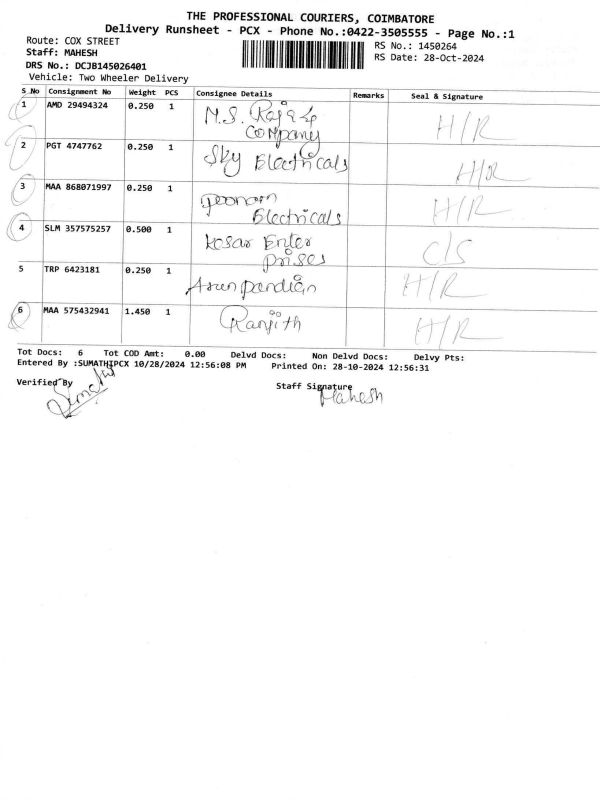 THE PROFESSIONAL COURIERS, COIMBATORE
Delivery Runsheet - PCX - Phone No.:0422-3505555 - Page No.:1
Route: COX STREET
RS No.: 1450264
Staff: MAHESH
RS Date: 28-Oct-2024
DRS No.: DCJB145026401
Vehicle: Two Wheeler Delivery
S_No Consignment No Weight PCS Consignee Details Remarks Seal & Signature
1 AMD 29494324 0.250 1 M.S. Raja &
Company H/R
2 PGT 4747762 0.250 1 Sky Electricals H/R
3 MAA 868071997 0.250 1 poonam
Electricals H/R
4 SLM 357575257 0.500 1 kosar Enter
prises C/S
5 TRP 6423181 0.250 1 Arun pandian H/R
6 MAA 575432941 1.450 1 Ranjith H/R
Tot Docs: 6 Tot COD Amt: 0.00 Delvd Docs: Non Delvd Docs: Delvy Pts:
Entered By :SUMATHIPCX 10/28/2024 12:56:08 PM Printed On: 28-10-2024 12:56:31
Verified By Staff Signature
Mahesh